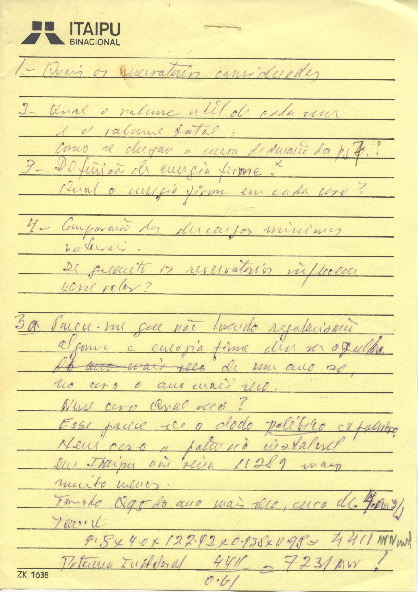 ITAIPU
BINACIONAL
1- Quais os reservatórios considerados
2- Qual o volume útil de cada um
e o volume total.
Como se chegou a curva de duração da pg 7?
3- Definição de energia firme.
Qual a energia firme em cada caso?
4- Comparação das descargas mínimas
naturais.
De quanto os reservatórios influem
nesse valor?
3a Parece-me que não havendo regularização
alguma a energia firme deve ser aquela
de um ano se,
no caso o ano mais seco.
Nesse caso qual seco?
Esse parece ser o dado
Nesse caso a potência instalável
em Itaipu não seria 11289 mas
muito menor.
Tomado Q95 do ano mais seco, cerca de
9.8 x 40 x 12292 x 0.938 x 0.98 = 4411 MW
Potencia Instalavel 4411 = 7231 MW!
0.61
ZK 1638